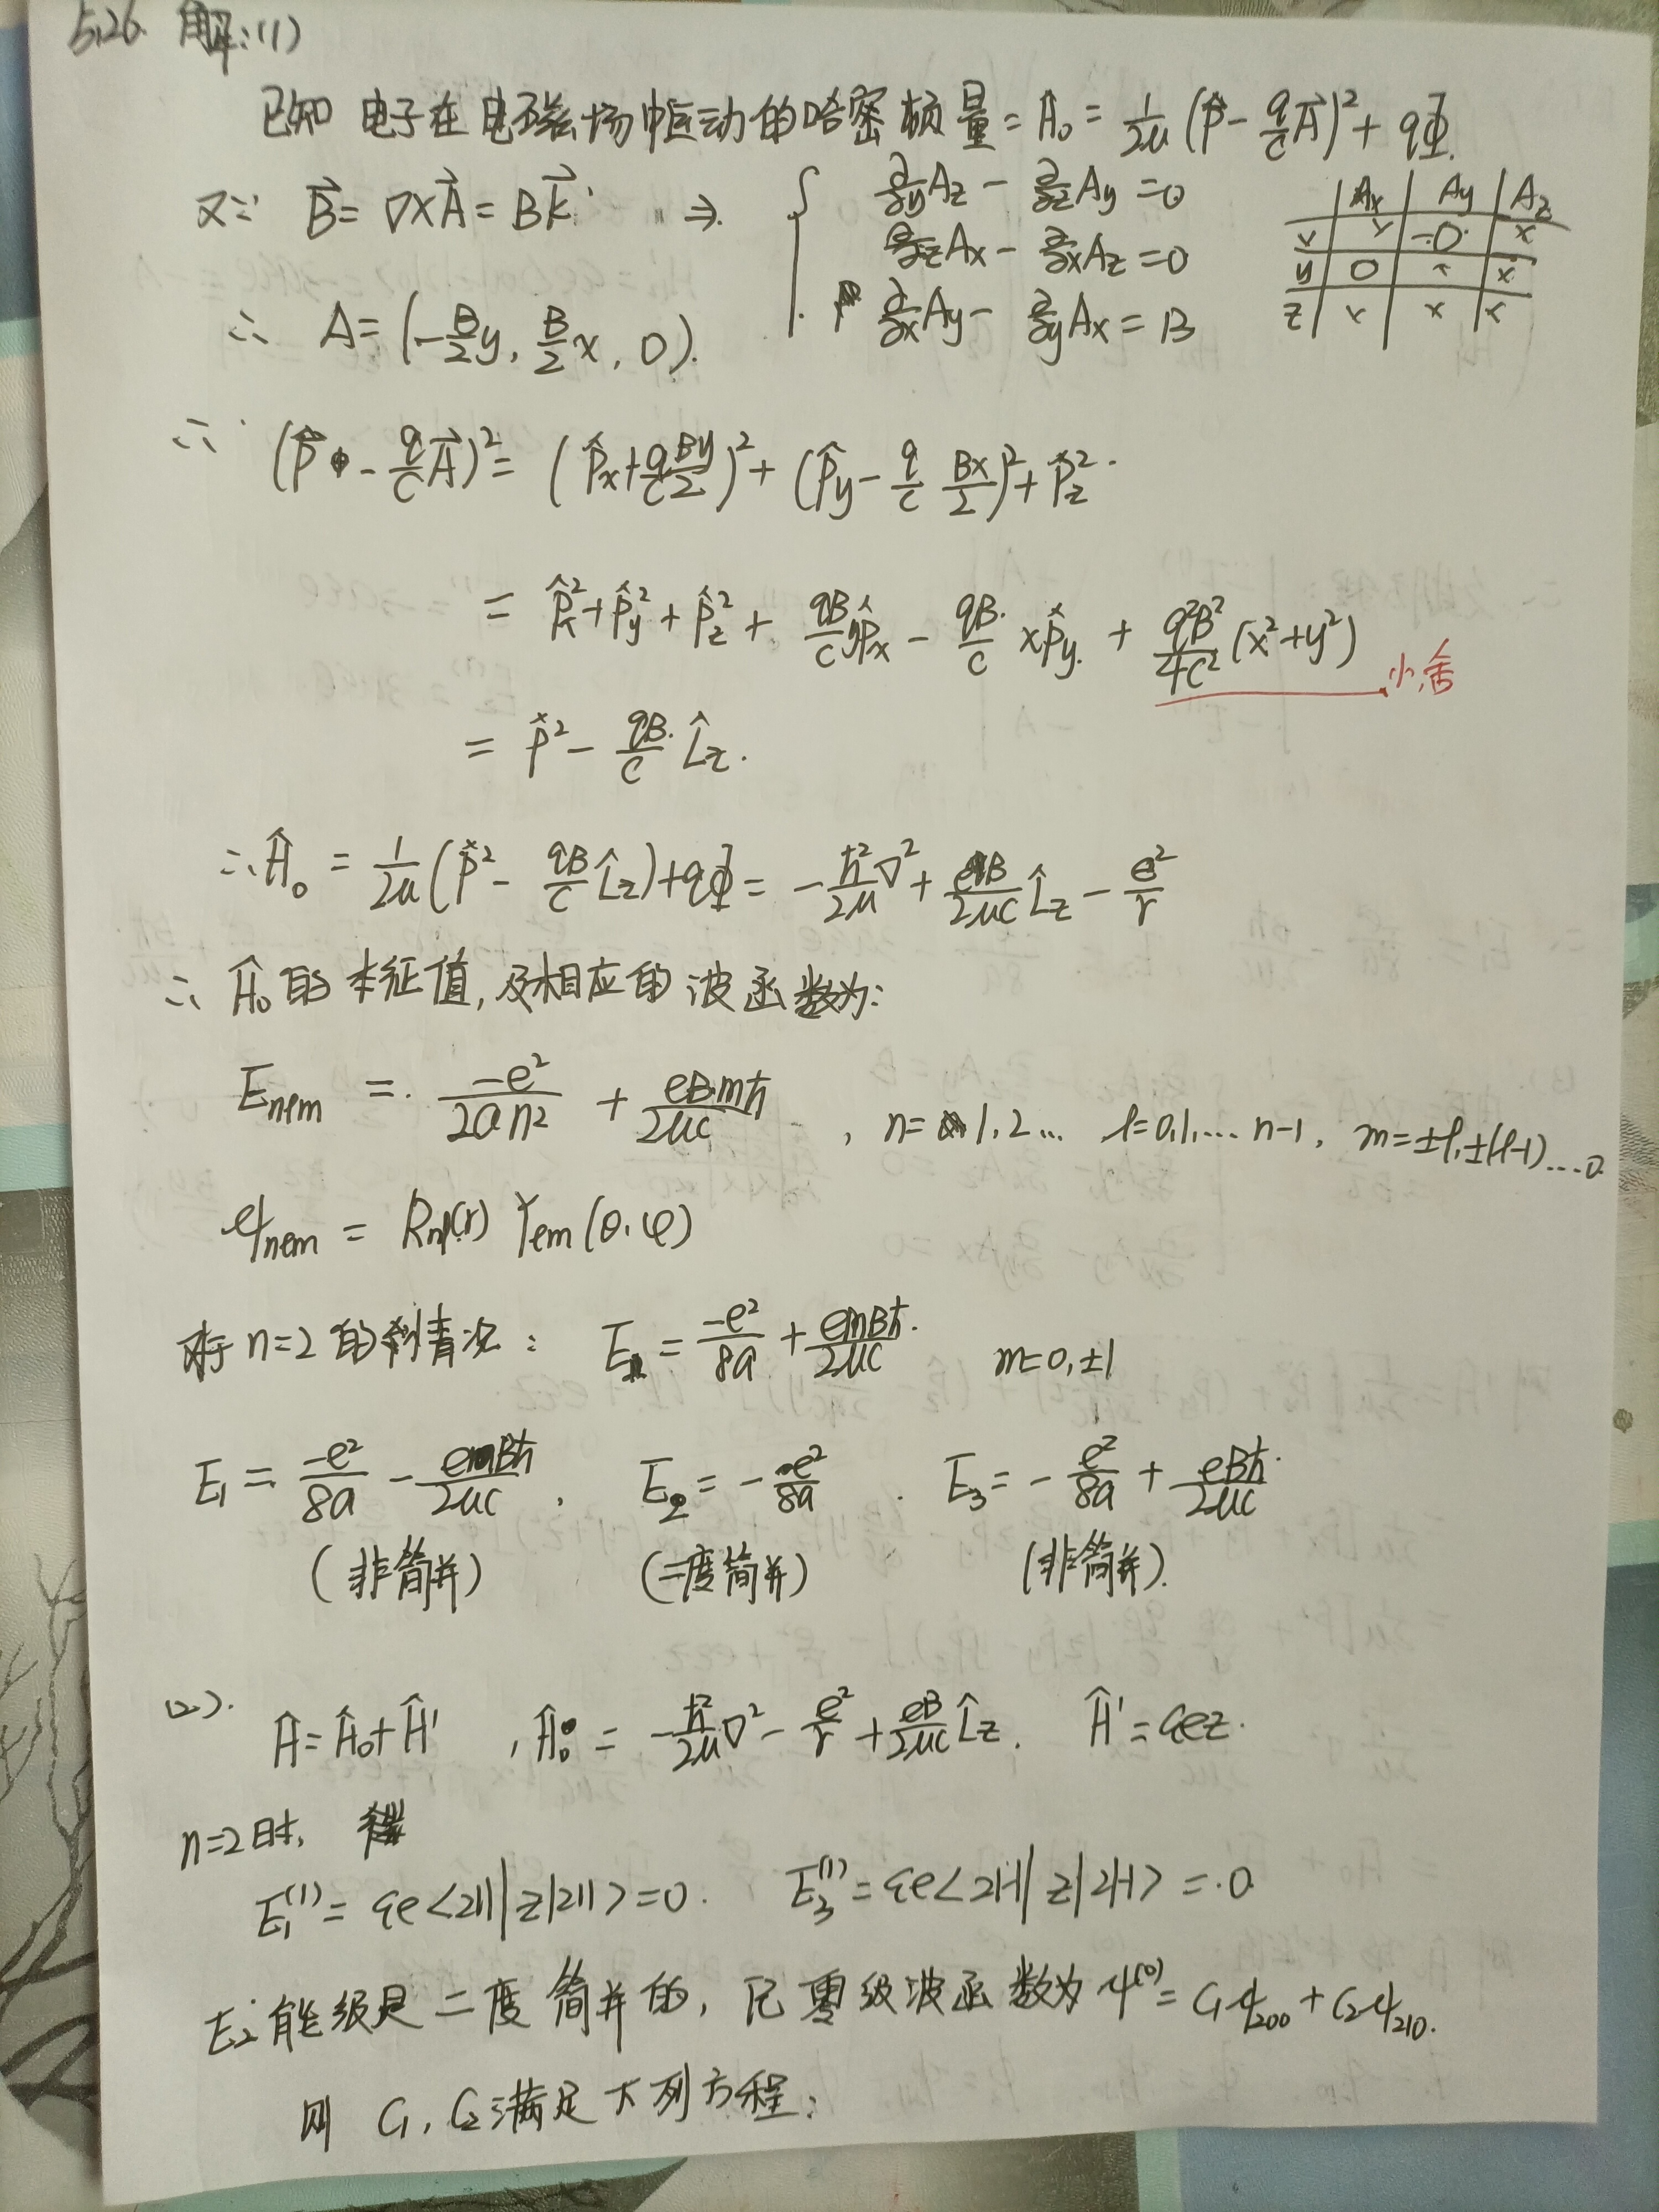 5.26. 解:(1)
已知 电子在电磁场中运动的哈密顿量 = Ĥ₀ = 1/2μ (p̂ - q/c A⃗)² + qΦ.
又∵ B⃗ = ∇×A⃗ = Bk⃗ ⇒ { ∂/∂y Az - ∂/∂z Ay = 0
∂/∂z Ax - ∂/∂x Az = 0
∂/∂x Ay - ∂/∂y Ax = B
Ax Ay Az
x x 0 x
y 0 x x
z x x x
∴ A = (-B/2 y, B/2 x, 0).
∴ (p̂ - q/c A⃗)² = (p̂x + q/c By/2)² + (p̂y - q/c Bx/2)² + p̂z².
= p̂x² + p̂y² + p̂z² + qB/c yp̂x - qB/c xp̂y + q²B²/4c² (x²+y²) 小,舍
= p̂² - qB/c L̂z.
∴ Ĥ₀ = 1/2μ (p̂² - qB/c L̂z) + qΦ = -ħ²/2μ ∇² + eB/2μc L̂z - e²/r
∴ Ĥ₀ 的本征值,及相应的波函数为:
Enlm = -e²/2an² + eBmħ/2μc , n = 1,2... l=0,1,... n-1, m=±l,±(l-1)...0
ψnlm = Rnl(r) Ylm(θ,φ)
对于 n=2 的情况: E₂ = -e²/8a + emBħ/2μc m=0,±1
E₁ = -e²/8a - eBħ/2μc , E₂ = -e²/8a . E₃ = -e²/8a + eBħ/2μc
(非简并) (二度简并) (非简并).
(2). Ĥ = Ĥ₀ + Ĥ' , Ĥ₀ = -ħ²/2μ ∇² - e²/r + eB/2μc L̂z. Ĥ' = εez.
n=2时,
E₁⁽¹⁾ = εe<211|z|211> = 0. E₃⁽¹⁾ = εe<21-1|z|21-1> = 0
E₂能级是二度简并的, 记零级波函数为 ψ⁽⁰⁾ = C₁ψ₂₀₀ + C₂ψ₂₁₀.
则 C₁, C₂满足下列方程: